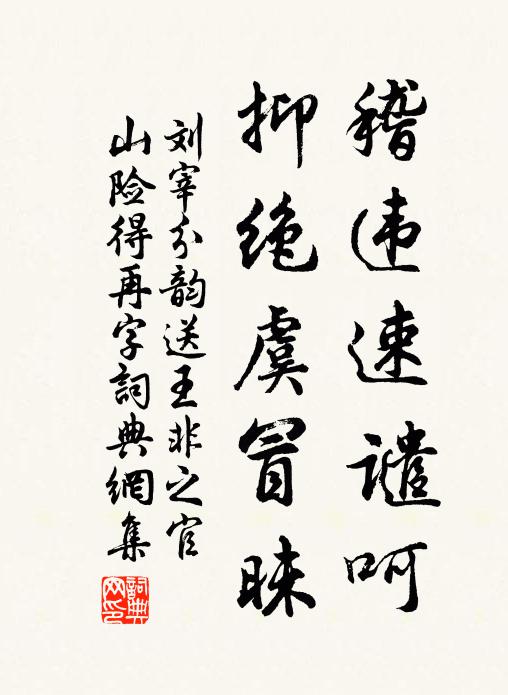 稽违速谴呵
抑绝虞冒昧
刘宰分韵送王非之官
山险得再字詞典網集
詞典网印